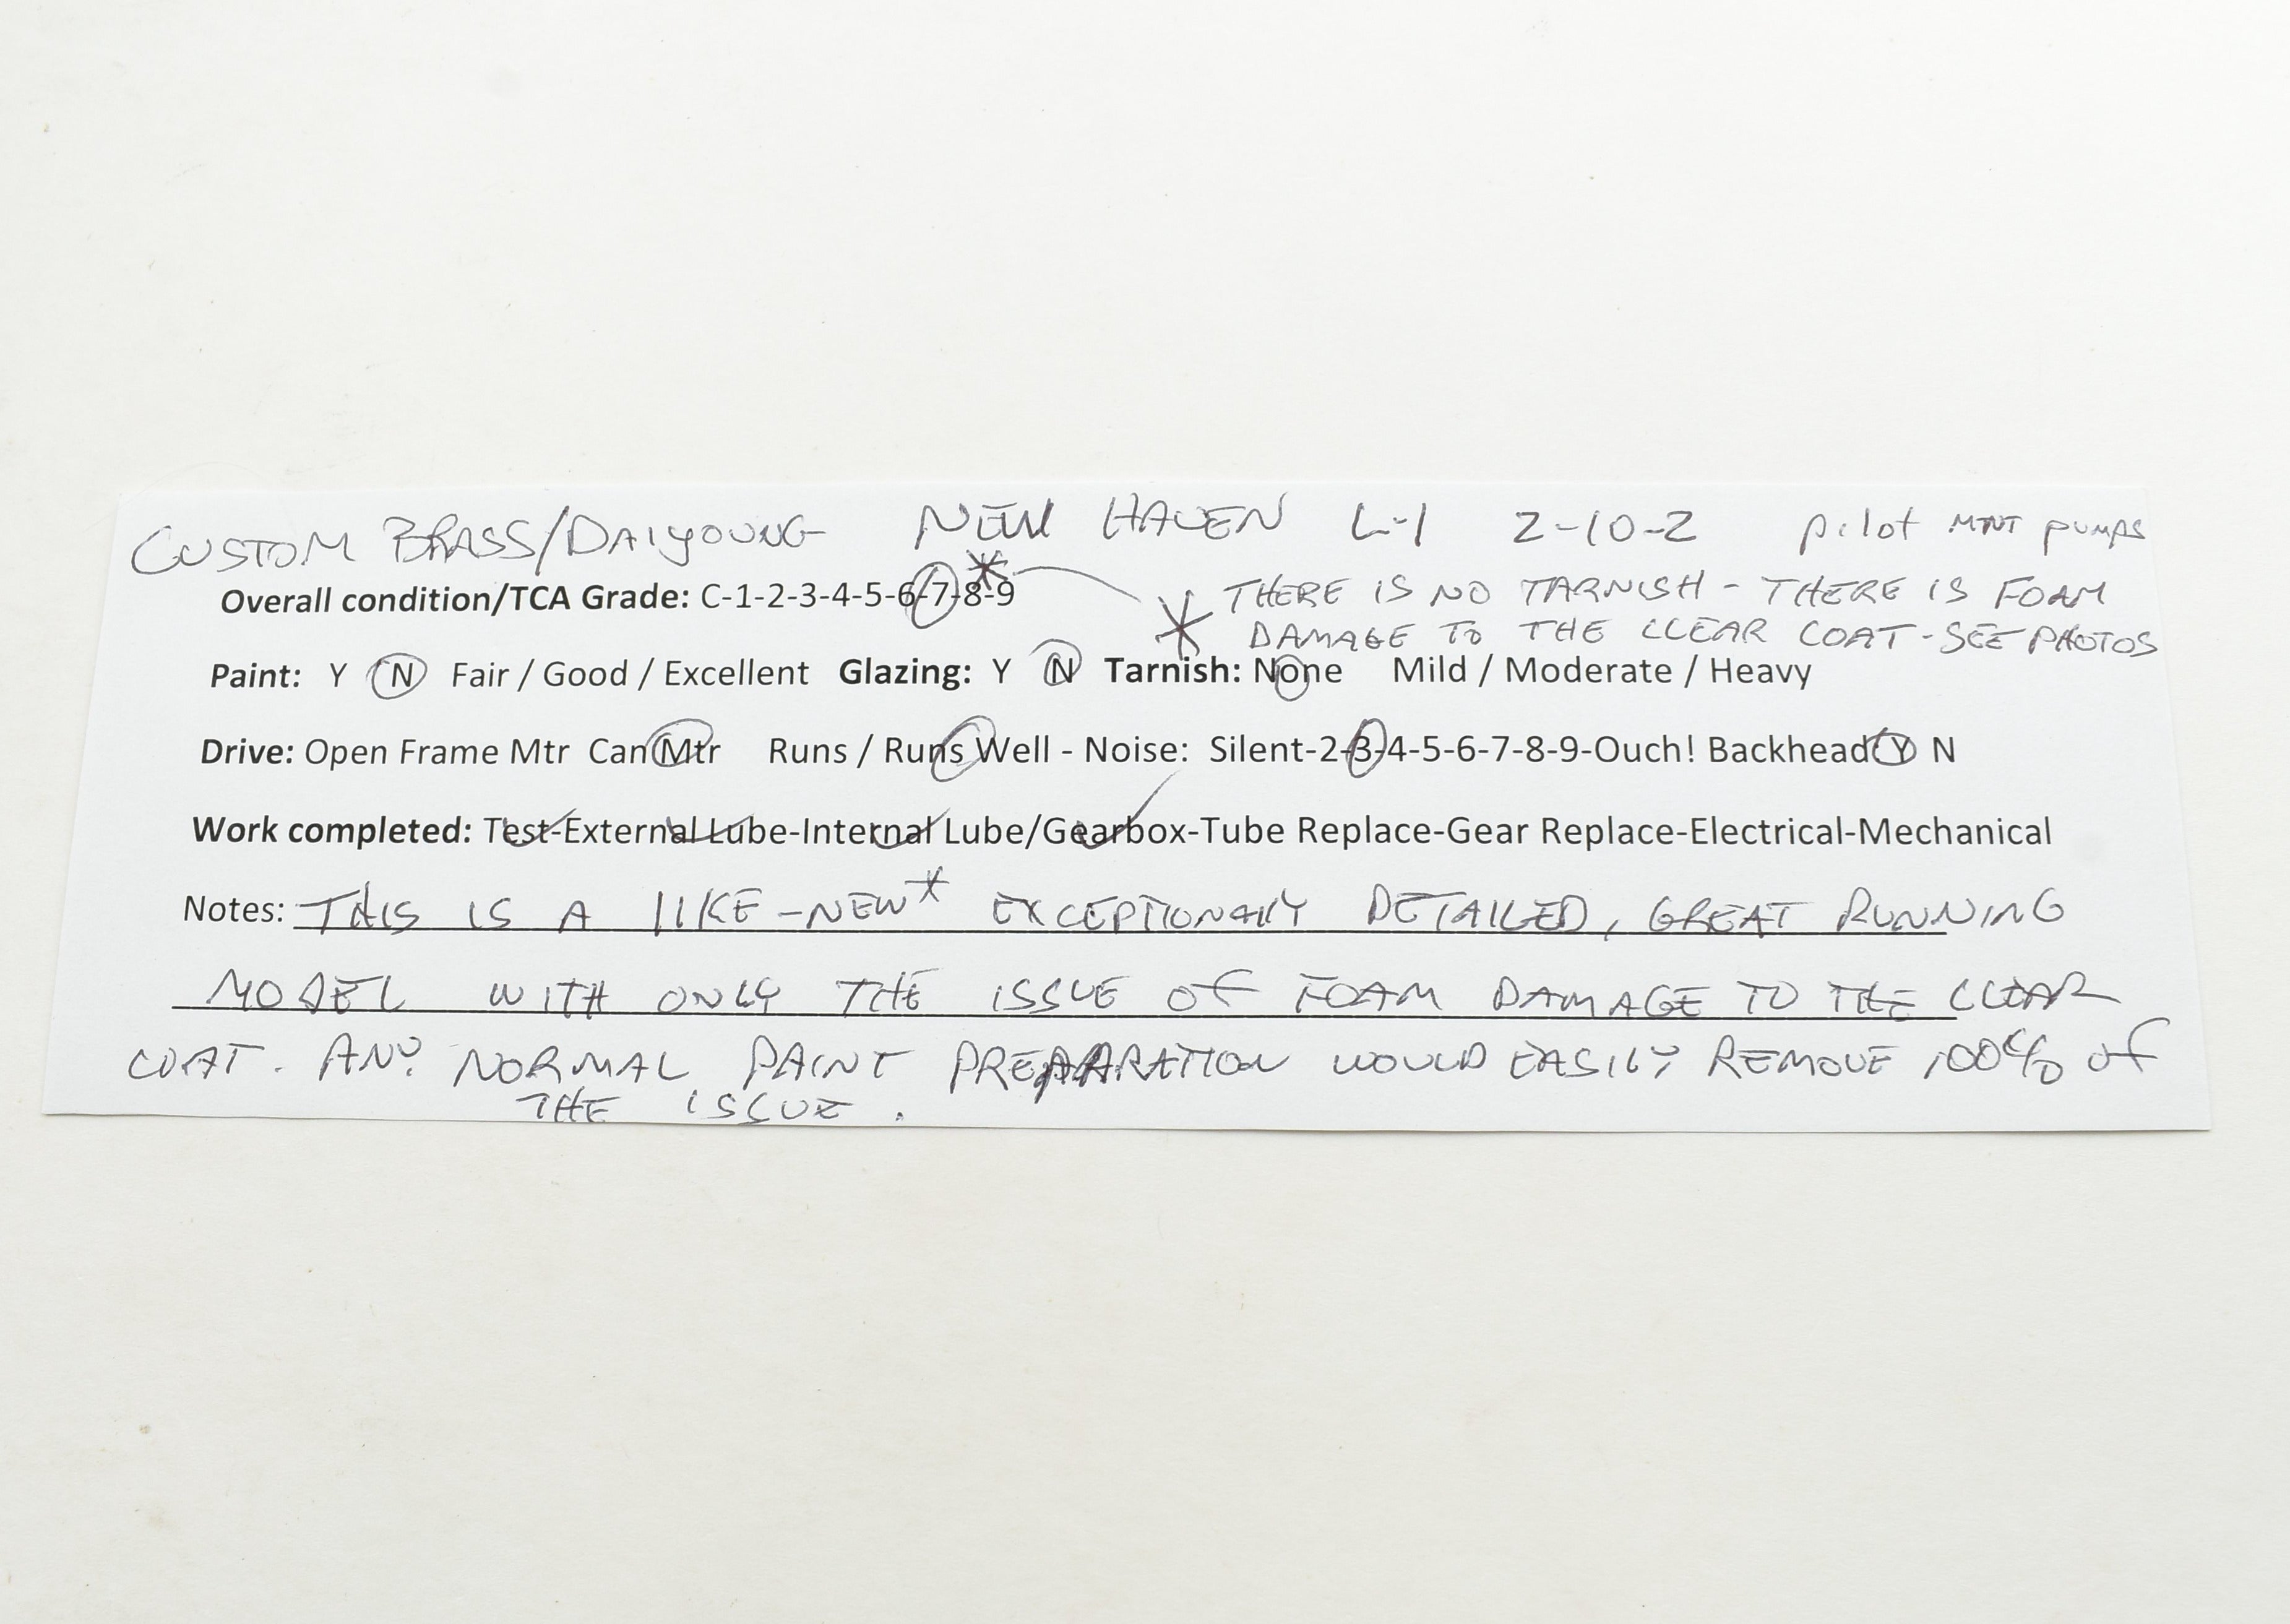 CUSTOM BRASS/DAIYOUNG NEW HAVEN L-1 2-10-2 pilot MNT pumps
Overall condition/TCA Grade: C-1-2-3-4-5-6-7-8-9 *
* THERE IS NO TARNISH - THERE IS FOAM
DAMAGE TO THE CLEAR COAT - SEE PHOTOS
Paint: Y N Fair / Good / Excellent Glazing: Y N Tarnish: None Mild / Moderate / Heavy
Drive: Open Frame Mtr Can Mtr Runs / Runs Well - Noise: Silent-2-3-4-5-6-7-8-9-Ouch! Backhead Y N
Work completed: Test-External Lube-Internal Lube/Gearbox-Tube Replace-Gear Replace-Electrical-Mechanical
Notes: THIS IS A LIKE-NEW* EXCEPTIONALLY DETAILED, GREAT RUNNING
MODEL WITH ONLY THE ISSUE OF FOAM DAMAGE TO THE CLEAR
COAT. ANY NORMAL PAINT PREPARATION WOULD EASILY REMOVE 100% of
THE ISSUE.